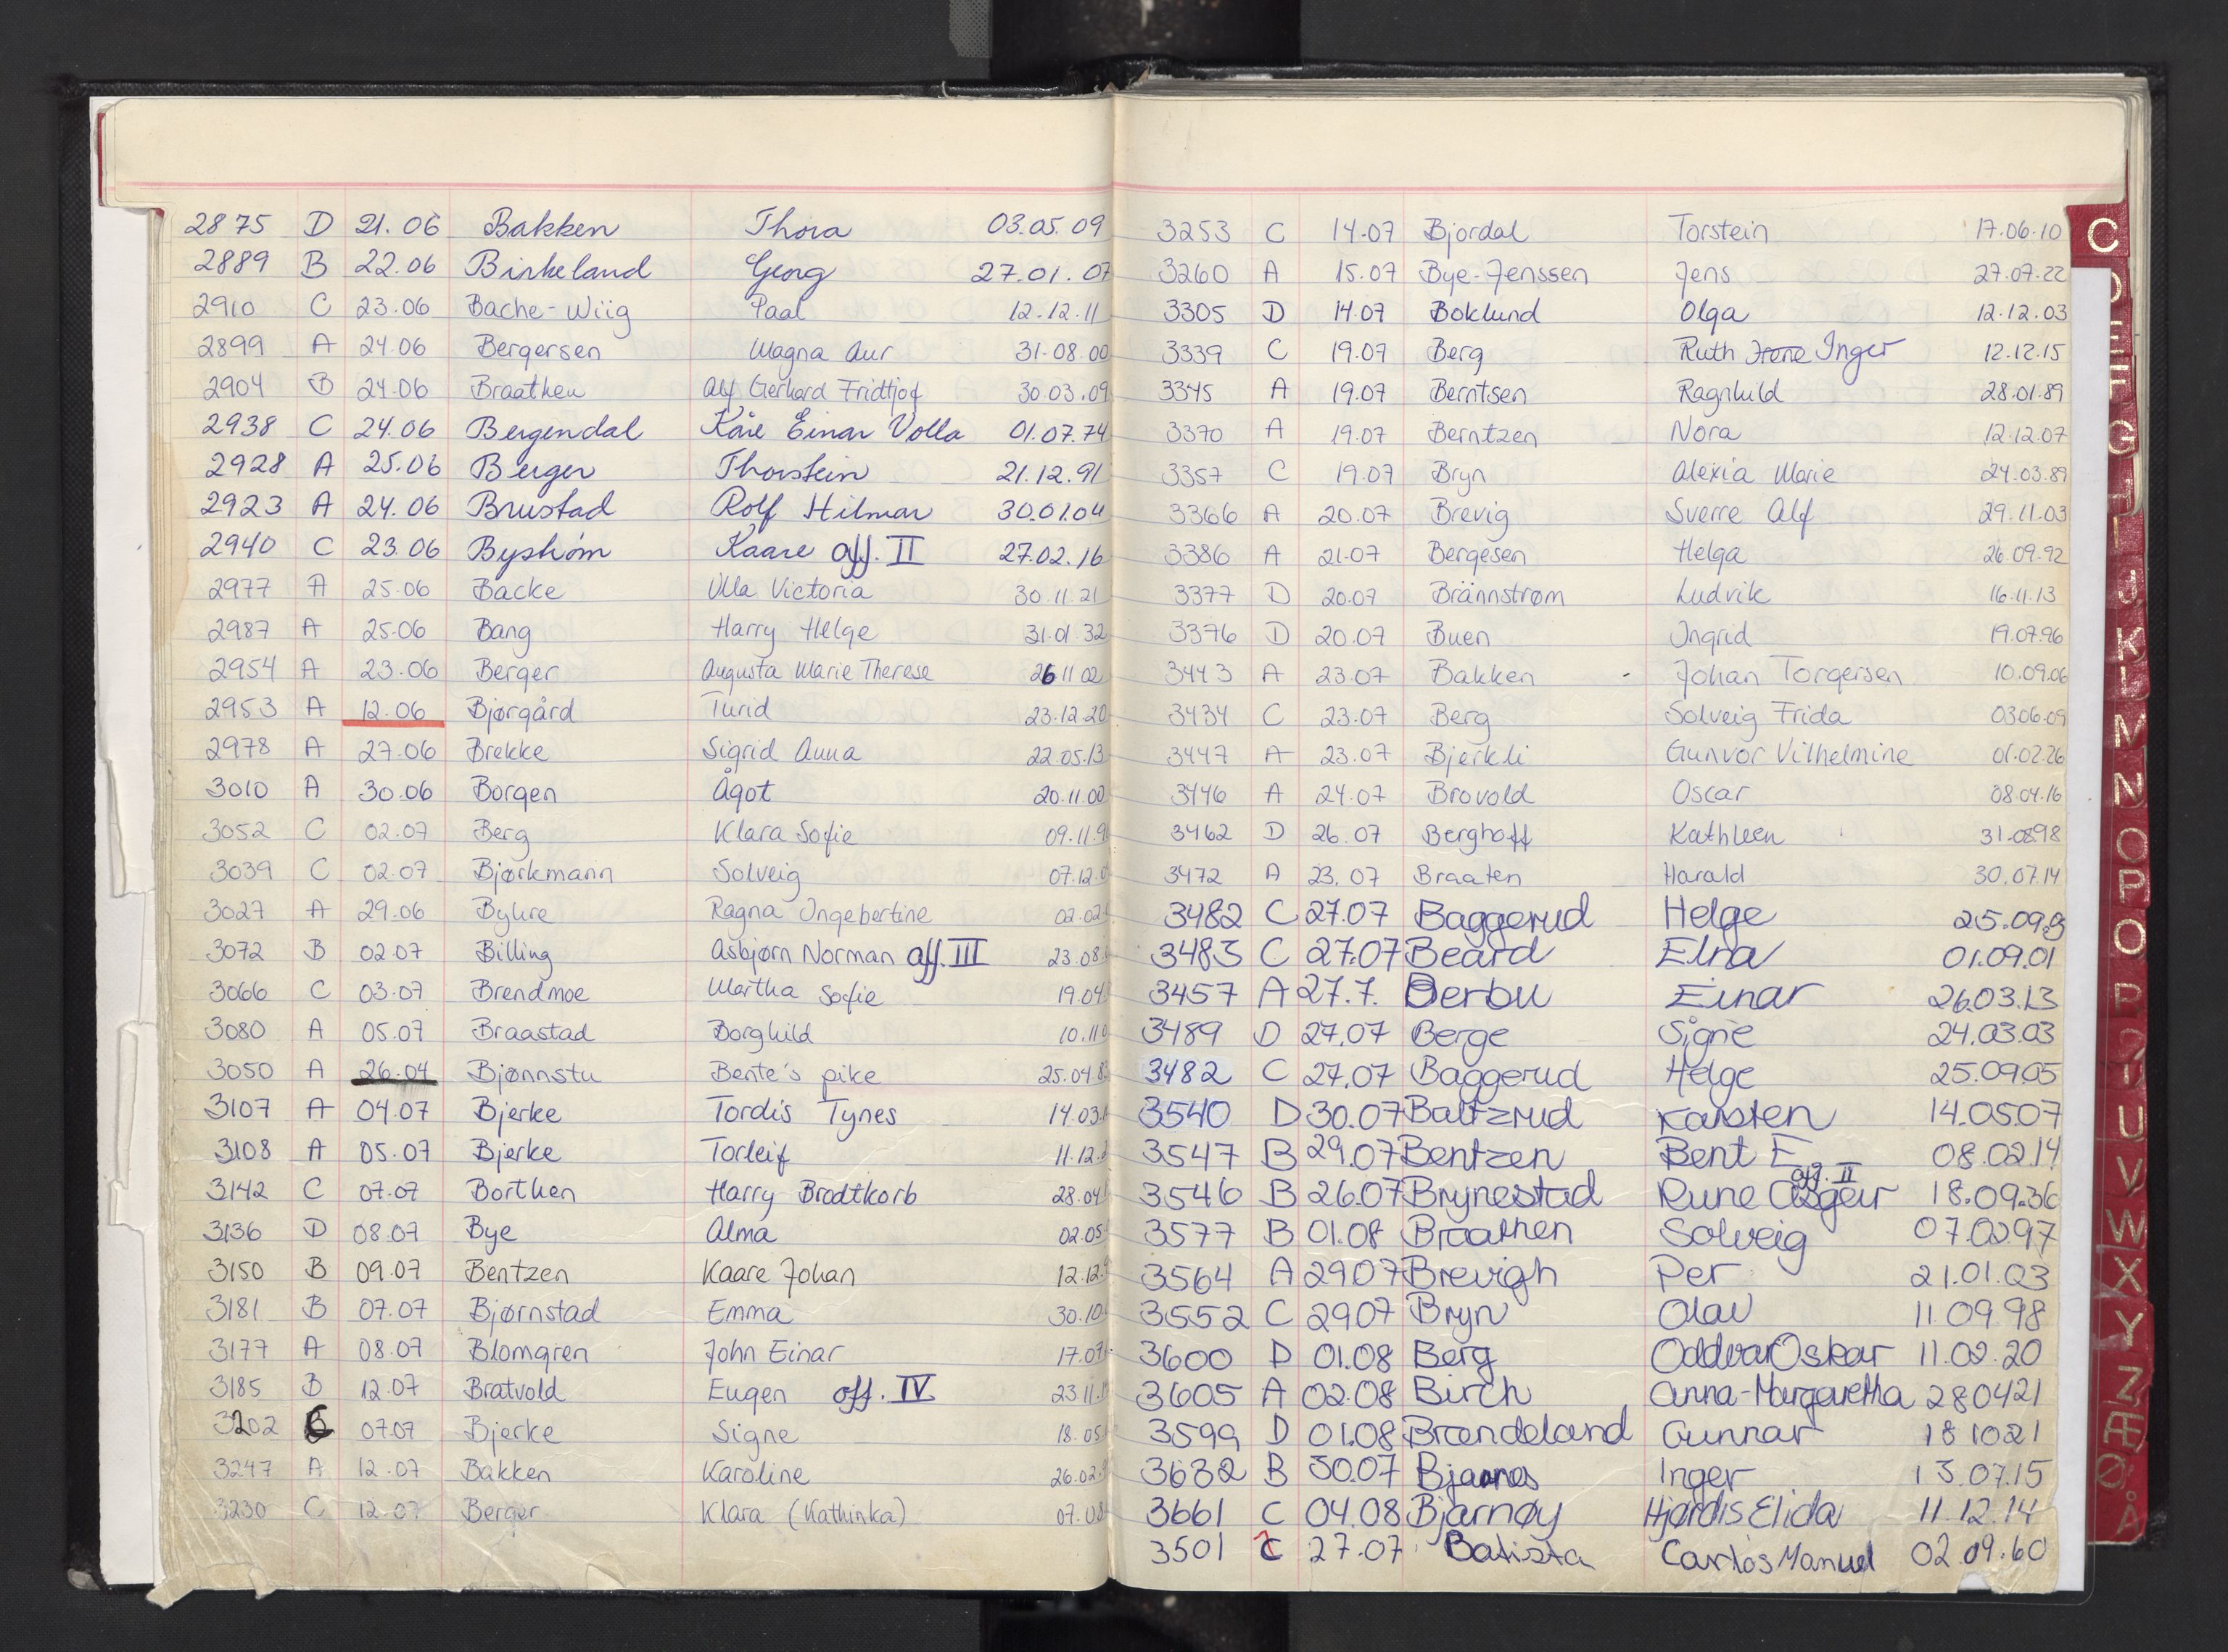 2875 D 21.06 Bakken Thora 03.05.09
2889 B 22.06 Birkeland Georg 27.01.07
2910 C 23.06 Bache-Wiig Paal 12.12.11
2899 A 24.06 Bergersen Magna Aur 31.08.00
2904 B 24.06 Braathen Alf Gerhard Fridtjof 30.03.09
2938 C 24.06 Bergendal Kåre Einar Volla 01.07.74
2928 A 25.06 Berger Thorstein 21.12.91
2923 A 24.06 Brustad Rolf Hilmar 30.01.04
2940 C 23.06 Bystrøm Kaare off. II 27.02.16
2977 A 25.06 Backe Ulla Victoria 30.11.21
2987 A 25.06 Bang Harry Helge 31.01.32
2954 A 23.06 Berger Augusta Marie Therese 26 11 02
2953 A 12.06 Bjørgård Turid 23.12.20
2978 A 27.06 Brekke Sigrid Anna 22.05.13
3010 A 30.06 Borgen Ågot 20.11.00
3052 C 02.07 Berg Klara Sofie 09.11.9
3039 C 02.07 Bjørkmann Solveig 07.12.0
3027 A 29.06 Bykre Ragna Ingebertine 02.02
3072 B 02.07 Billing Asbjørn Norman off. III 23.08
3066 C 03.07 Brendmoe Martha Sofie 19.04
3080 A 05.07 Braastad Borghild 10.11.0
3050 A 26.04 Bjønnstu Bente's pike 25.04.8
3107 A 04.07 Bjerke Tordis Tynes 14.03.
3108 A 05.07 Bjerke Torleif 11.12.
3142 C 07.07 Borthen Harry Brodtkorb 28.04
3136 D 08.07 Bye Alma 02.05
3150 B 09.07 Bentzen Kaare Johan 12.12.
3181 B 07.07 Bjørnstad Emma 30.10
3177 A 08.07 Blomgren John Einar 17.07
3185 B 12.07 Bratvold Eugen off. IV 23.11.
3202 C 07.07 Bjerke Signe 18.05
3247 A 12.07 Bakken Karoline 26.02.
3230 C 12.07 Berger Klara (Kathinka) 07.08
3253 C 14.07 Bjordal Torstein 17.06.10
3260 A 15.07 Bye-Jenssen Jens 27.07.22
3305 D 14.07 Boklund Olga 12.12.03
3339 C 19.07 Berg Ruth Irene Inger 12.12.15
3345 A 19.07 Berntsen Ragnhild 28.01.89
3370 A 19.07 Berntzen Nora 12.12.07
3357 C 19.07 Bryn Alexia Marie 24.03.89
3366 A 20.07 Brevig Sverre Alf 29.11.03
3386 A 21.07 Bergesen Helga 26.09.92
3377 D 20.07 Brännstrøm Ludvik 16.11.13
3376 D 20.07 Buen Ingrid 19.07.96
3443 A 23.07 Bakken - Johan Torgersen 10.09.06
3434 C 23.07 Berg Solveig Frida 03.06.09
3447 A 23.07 Bjerkli Gunvor Vilhelmine 01.02.26
3446 A 24.07 Brovold Oscar 08.04.16
3462 D 26.07 Berghoff Kathleen 31.08.98
3472 A 23.07 Braaten Harald 30.07.14
3482 C 27.07 Baggerud Helge 25.09.
3483 C 27.07 Beard Elna 01.09.01
3457 A 27.7. Berbu Einar 26.03.13
3489 D 27.07 Berge Signe 24.03.03
3482 C 27.07 Baggerud Helge 25.09.05
3540 D 30.07 Baltzrud Karsten 14.05.07
3547 B 29.07 Bentzen Bent E 08.02.14
3546 B 26.07 Brynestad Rune Asgeir off. II 18.09.36
3577 B 01.08 Braathen Solveig 07.02.97
3564 A 29.07 Brevigh Per 21.01.03
3552 C 29.07 Bryn Olav 11.09.98
3600 D 01.08 Berg Oddvar Oskar 11.02.20
3605 A 02.08 Birch Anna-Margaretha 280421
3599 D 01.08 Brandeland Gunnar 18 10 21
3632 B 30.07 Inger 13.07.15
3661 C 04.08 Bjarnøy Hjørdis Elida 11.12.14
3501 C 27.07 Batista Carlos Manuel 02.09.60
C
D
E
F
G
I
J
K
L
M
N
O
P
U
V
W
X
Y
Z
Æ
Ø
Å